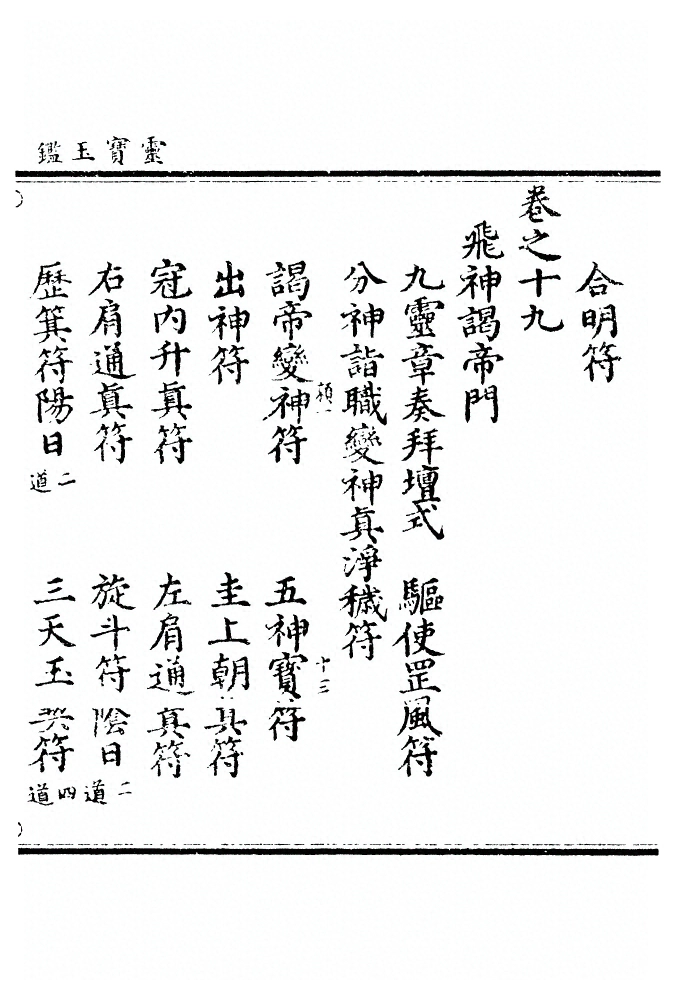 靈寶玉鑑
合明符
卷之十九
飛神謁帝門
九靈章奏拜壇式 驅使罡風符
分神詣職變神真淨穢符
謁帝變神符 五神寶符
十三
出神符 圭上朝真符
冠內升真符 左肩通真符
右肩通真符 旋斗符陰日二道
歷箕符陽日二道 三天玉符四道